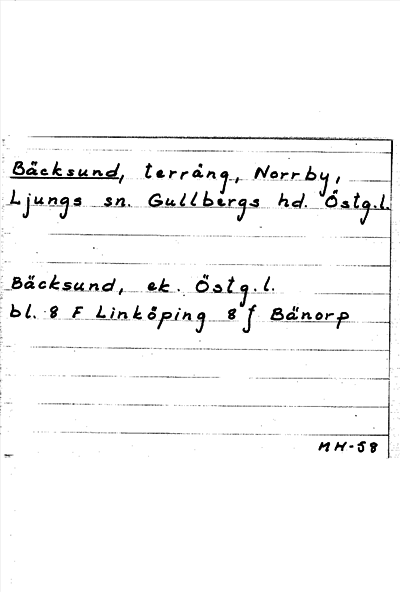 Bäcksund, terräng, Norrby,
Ljungs sn. Gullbergs hd. Östg.l.
Bäcksund, ek. Östg.l.
bl. 8 F Linköping 8 f Bänorp
MH-58